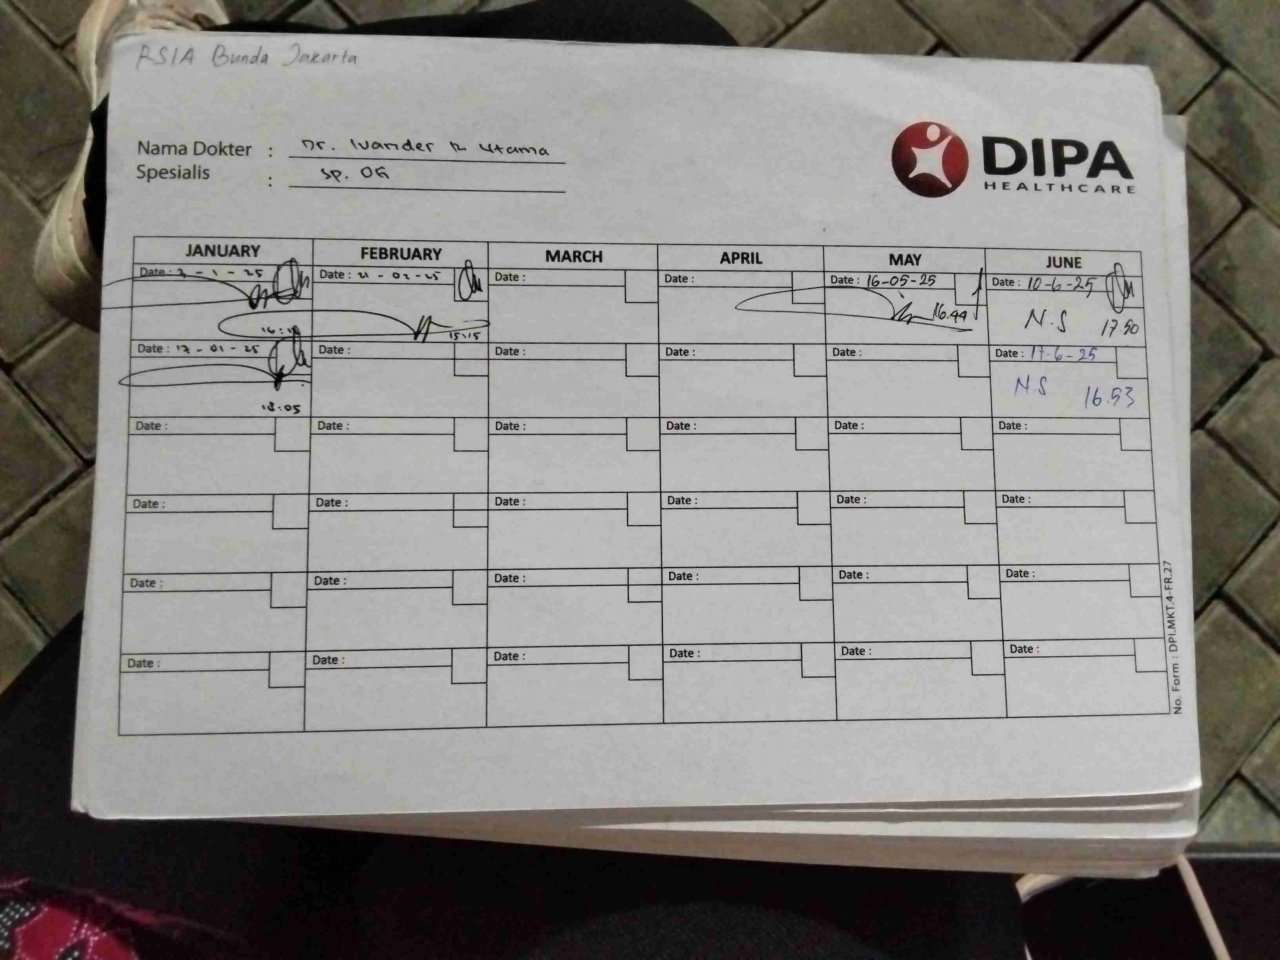 RSIA Bunda Jakarta
Nama Dokter : Dr. Ivander R Utama
Spesialis : Sp. OG
DIPA
HEALTHCARE
JANUARY FEBRUARY MARCH APRIL MAY JUNE
Date : 3 - 1 - 25 Date : 21 - 02 - 25 Date : Date : Date : 16-05-25 Date : 10-6-25
15:15 16.44 N.S 17.50
Date : 17 - 01 - 25 Date : Date : Date : Date : Date : 17-6-25
18:05 N.S 16.53
Date : Date : Date : Date : Date : Date :
Date : Date : Date : Date : Date : Date :
Date : Date : Date : Date : Date : Date :
Date : Date : Date : Date : Date : Date :
No. Form : DPI.MKT.4-FR.27